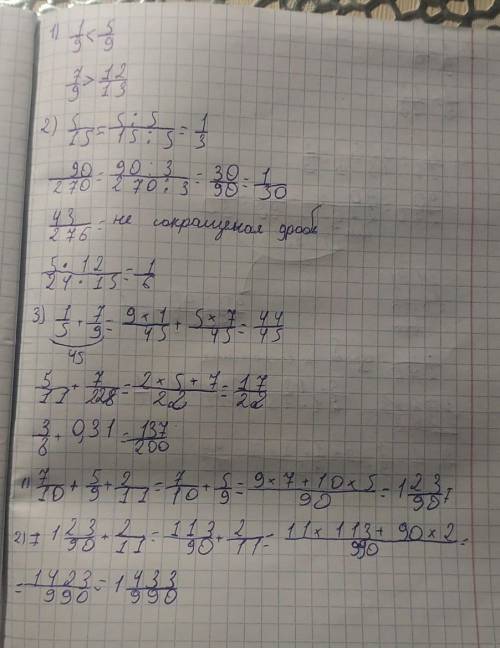 1) 1/9 < 5/9
7/9 > 12/13
2) 5/15 = 5:5/15:5 = 1/3
90/270 = 90:3/270:3 = 30/90 = 1/30
43/276 = не сокращеная дробь
5·12/24·15 = 1/6
3) 1/5 + 7/9 = 9×1/45 + 5×7/45 = 44/45
45
5/11 + 7/22 = 2×5+7/22 = 17/22
3/8 + 0,31 = 137/200
1) 7/10 + 5/9 + 2/11 = 7/10 + 5/9 = 9×7+10×5/90 = 1 23/90
2) 1 23/90 + 2/11 = 113/90 + 2/11 = 11×113+90×2/990 =
= 1423/990 = 1 433/990